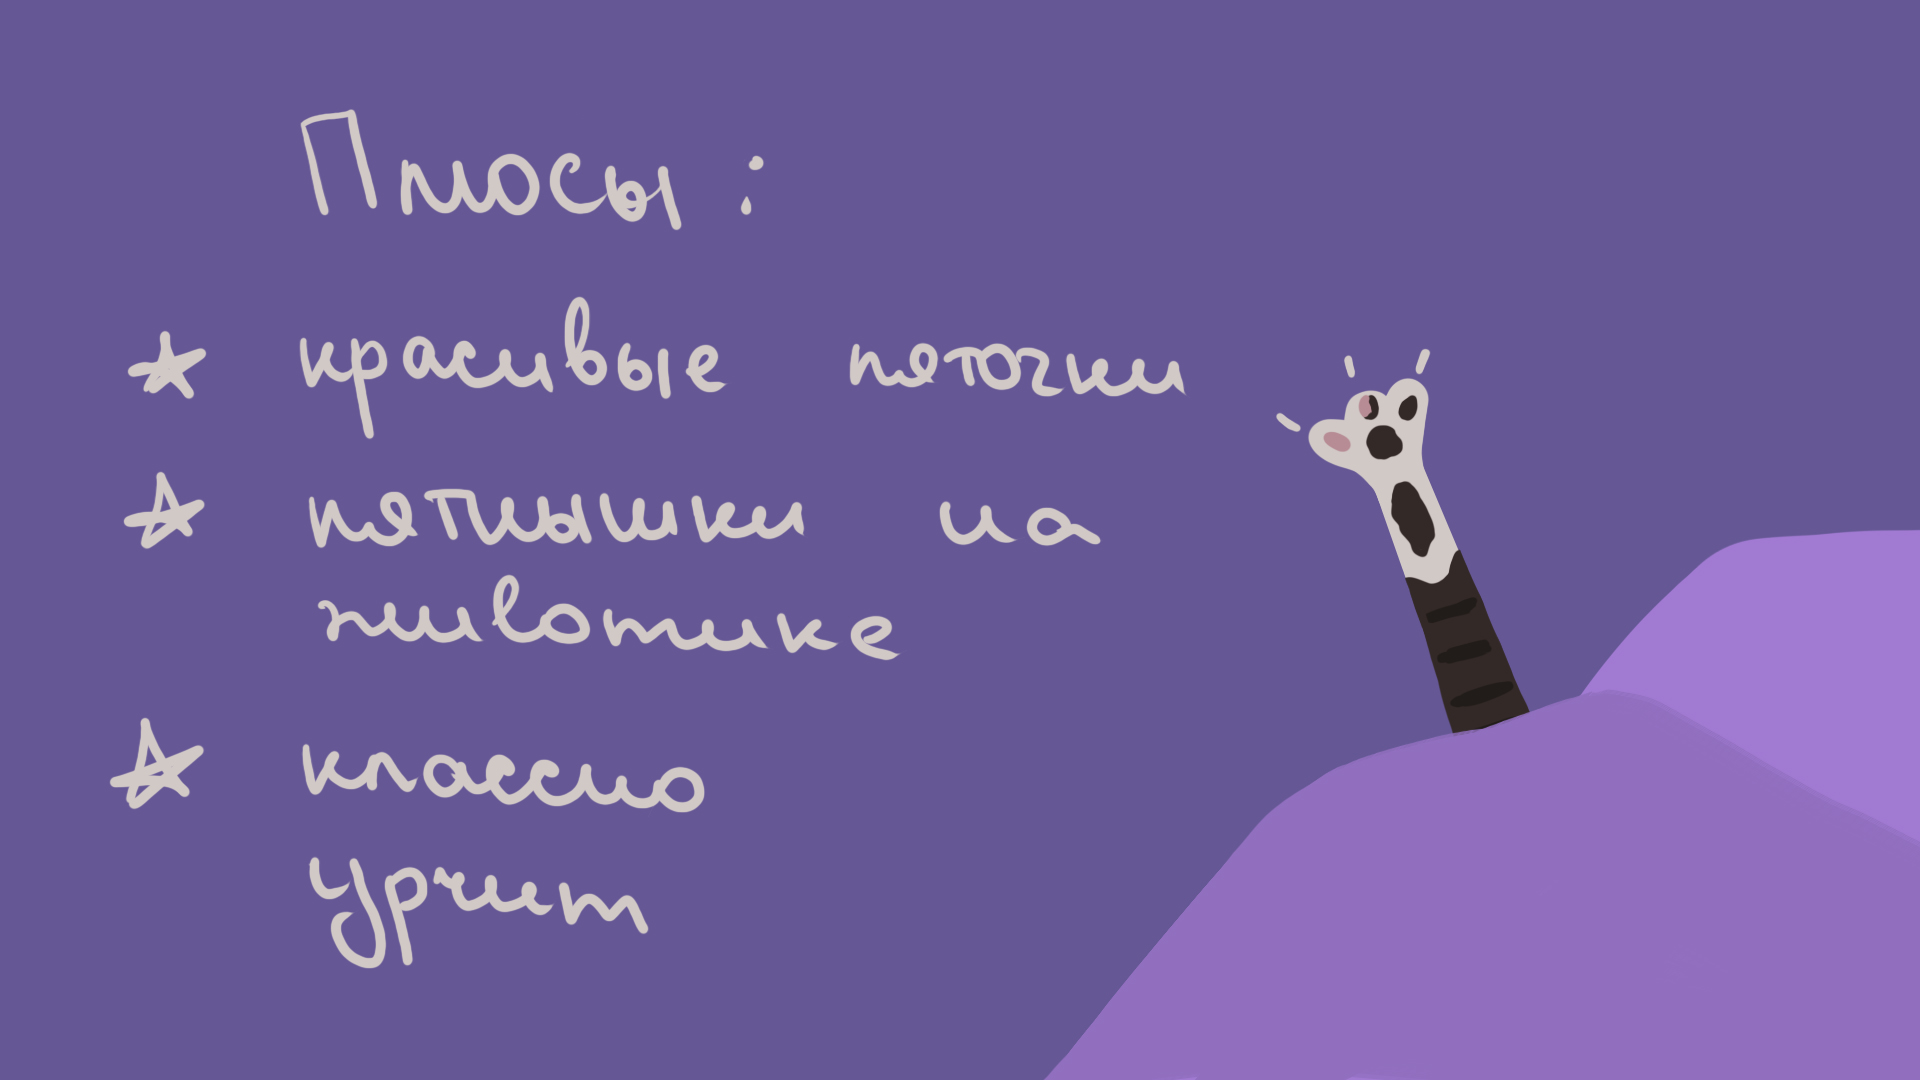 Плюсы:
красивые пяточки
пятнышки на
животике
классно
урчит